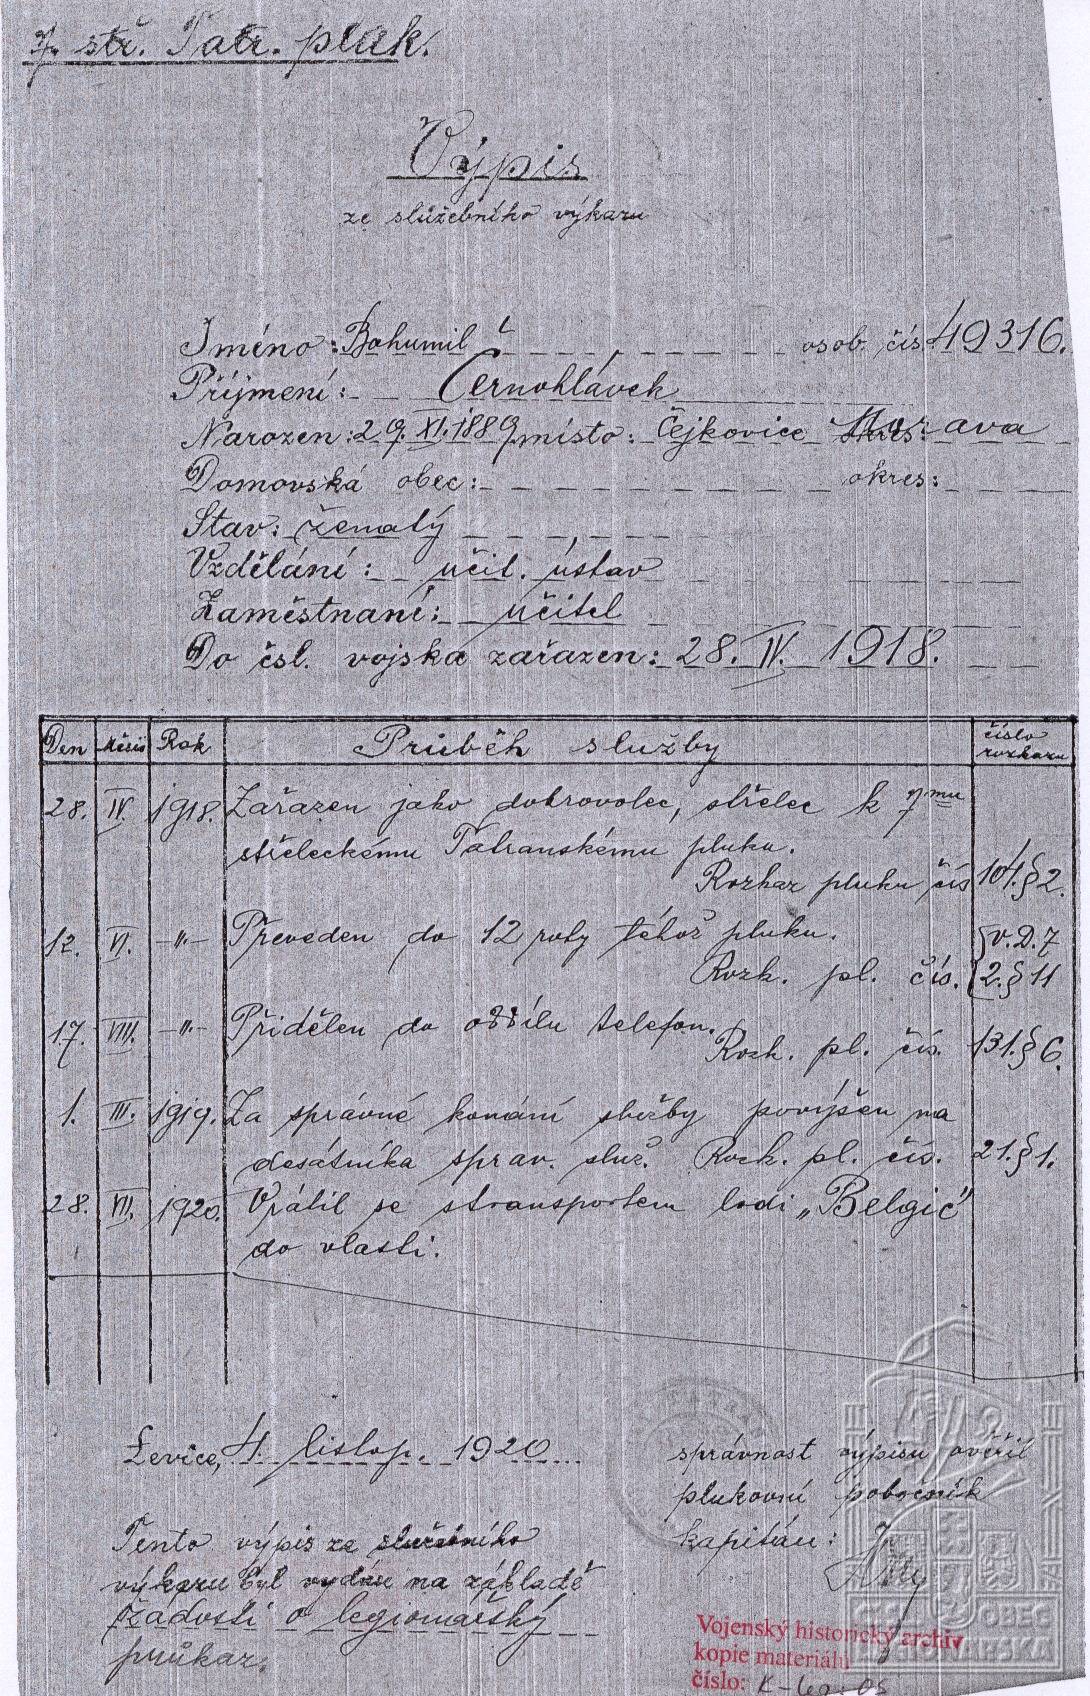 7. stř. Tatr. pluk.
Výpis
ze služebního výkazu
Jméno: Bohumil osob. čís. 49316.
Příjmení: Černohlávek
Narozen: 29. XI. 1889 místo: Čejkovice okres: Morava
Domovská obec: okres:
Stav: ženatý
Vzdělání: učit. ústav
Zaměstnaní: učitel
Do čsl. vojska zařazen: 28. IV. 1918.
Den Měsíc Rok Průběh služby číslo rozkazu
28. IV. 1918. Zařazen jako dobrovolec, střelec k 7mu
střeleckému Tatranskému pluku.
Rozkaz pluku čís 104. § 2.
12. VI. -"- Převeden do 12 roty téhož pluku. v. D. 7
Rozk. pl. čís. 2. § 11
17. VIII. -"- Přidělen do oddílu telefon.
Rozk. pl. čís. 131. § 6.
1. III. 1919. Za správné konání služby povýšen na
desátníka sprav. služ. Rozk. pl. čís. 21. § 1.
28. VII. 1920. Vrátil se stransportem lodi „Belgic"
do vlasti.
Levice, 4. listop. 1920
správnost výpisu ověřil
plukovní pobočník
kapitán:
Tento výpis ze služebního
výkazu byl vydán na základě
žádosti o legionářský
průkaz.
Vojenský historický archiv
kopie materiálu
číslo:
OBEC
LEGIONÁŘSKÁ